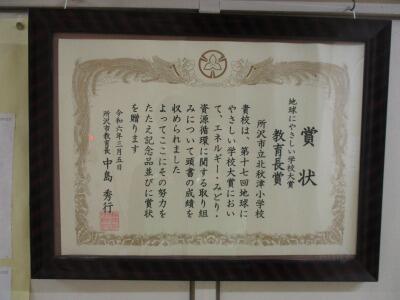 賞状
地球にやさしい学校大賞
教育長賞
所沢市立北秋津小学校
貴校は、第十七回地球に
やさしい学校大賞におい
て、エネルギー・みどり・
資源循環に関する取り組
みについて頭書の成績を
収められました
よってここにその努力を
たたえ記念品並びに賞状
を贈ります
令和六年三月五日
所沢市教育長 中島秀行